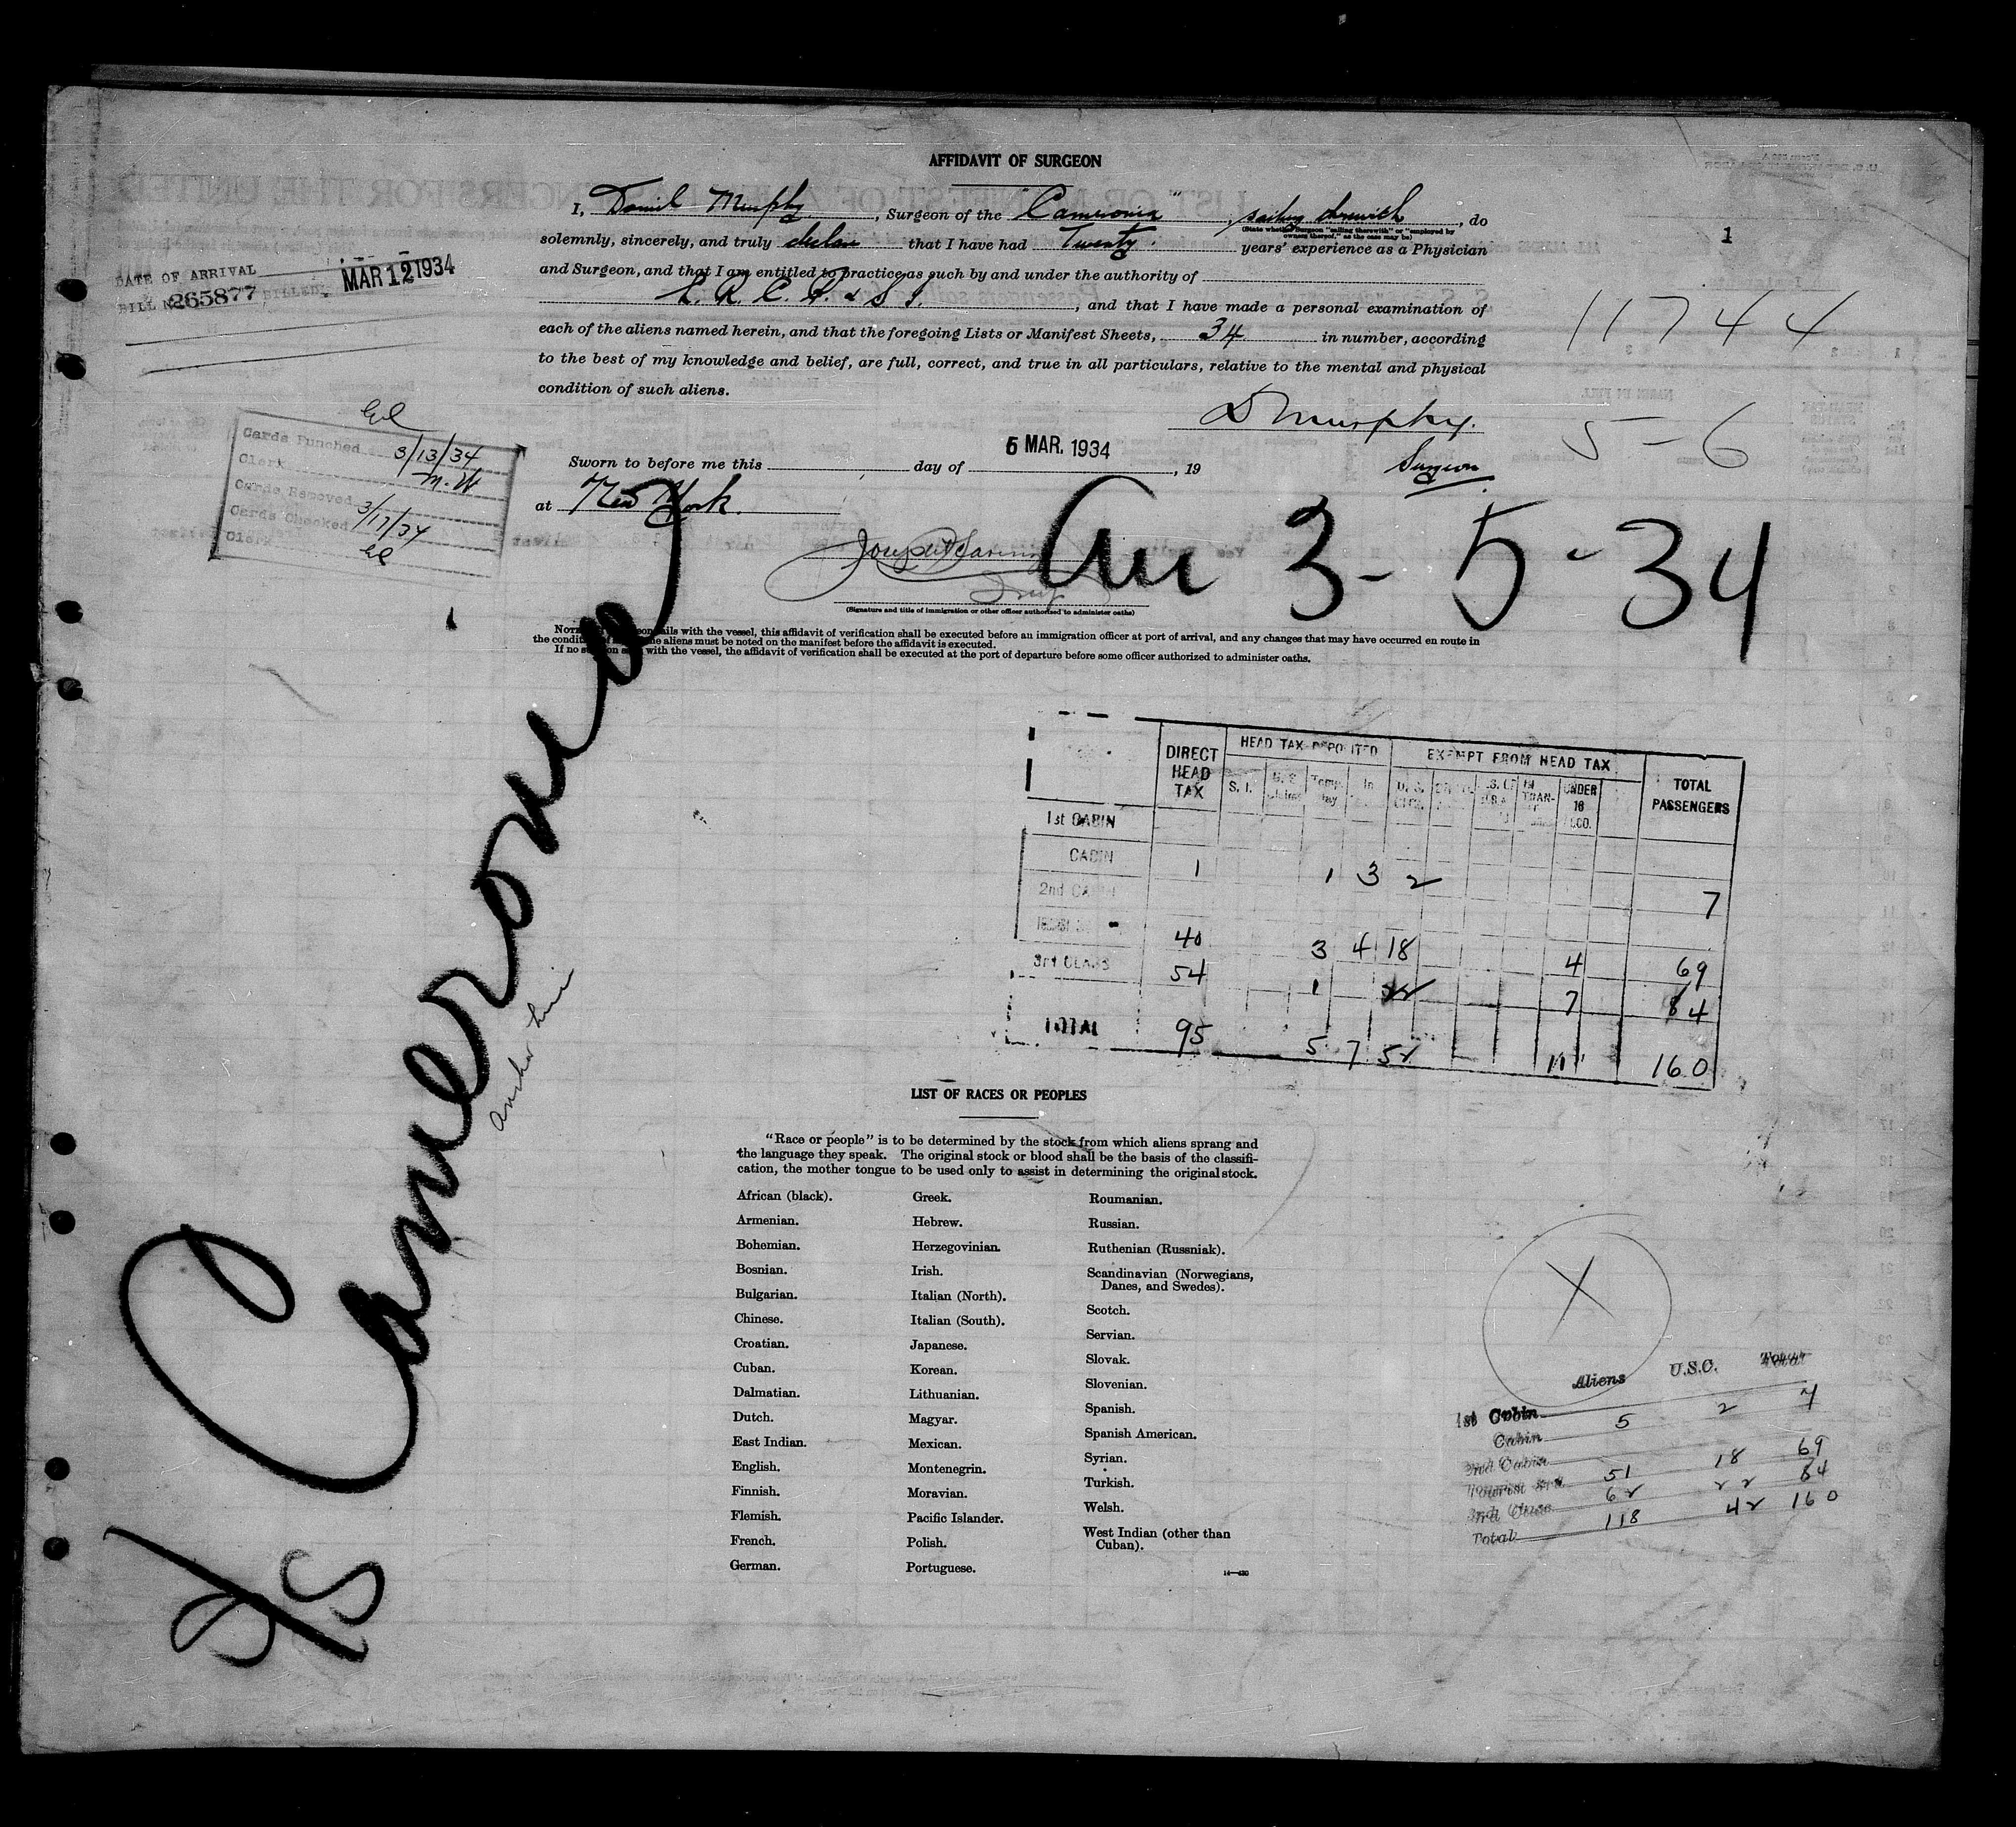 AFFIDAVIT OF SURGEON
I, Daniel Murphy, Surgeon of the "Cameronia", sailing therewith, do
(State whether Surgeon "sailing therewith" or "employed by
owners thereof," as the case may be)
solemnly, sincerely, and truly declare that I have had Twenty years' experience as a Physician
and Surgeon, and that I am entitled to practice as such by and under the authority of
L. R. C. P. & S I., and that I have made a personal examination of
each of the aliens named herein, and that the foregoing Lists or Manifest Sheets, 34 in number, according
to the best of my knowledge and belief, are full, correct, and true in all particulars, relative to the mental and physical
condition of such aliens.
1
DATE OF ARRIVAL MAR 12 1934
BILL No. 265877 BILLED
11744
5-6
D Murphy.
Surgeon
Cards Punched 3/13/34
Clerk M.W
Cards Removed
Cards Checked 3/17/34
Clerk
Sworn to before me this day of 5 MAR. 1934, 19
at New York.
Arr 3-5-34
(Signature and title of immigration or other officer authorized to administer oaths)
NOTE sails with the vessel, this affidavit of verification shall be executed before an immigration officer at port of arrival, and any changes that may have occurred en route in
the condition of the aliens must be noted on the manifest before the affidavit is executed.
If no surgeon sails with the vessel, the affidavit of verification shall be executed at the port of departure before some officer authorized to administer oaths.
S/S Cameronia
Anchor Line
DIRECT HEAD TAX HEAD TAX DEPOSITED EXEMPT FROM HEAD TAX TOTAL PASSENGERS
S. I. U. S. Temp. In U. S. IN TRAN- UNDER 16
1st CABIN
CABIN 1 1 3 2 7
2nd CABIN
40 3 4 18 4 69
3rd CLASS 54 1 22 7 84
TOTAL 95 5 7 52 11 160
LIST OF RACES OR PEOPLES
"Race or people" is to be determined by the stock from which aliens sprang and
the language they speak. The original stock or blood shall be the basis of the classifi-
cation, the mother tongue to be used only to assist in determining the original stock.
African (black).
Armenian.
Bohemian.
Bosnian.
Bulgarian.
Chinese.
Croatian.
Cuban.
Dalmatian.
Dutch.
East Indian.
English.
Finnish.
Flemish.
French.
German.
Greek.
Hebrew.
Herzegovinian.
Irish.
Italian (North).
Italian (South).
Japanese.
Korean.
Lithuanian.
Magyar.
Mexican.
Montenegrin.
Moravian.
Pacific Islander.
Polish.
Portuguese.
Roumanian.
Russian.
Ruthenian (Russniak).
Scandinavian (Norwegians,
Danes, and Swedes).
Scotch.
Servian.
Slovak.
Slovenian.
Spanish.
Spanish American.
Syrian.
Turkish.
Welsh.
West Indian (other than
Cuban).
X
Aliens U.S.C. Total
1st Cabin
Cabin 5 2 7
2nd Cabin
Tourist 3rd 51 18 69
3rd Class 62 22 84
Total 118 42 160